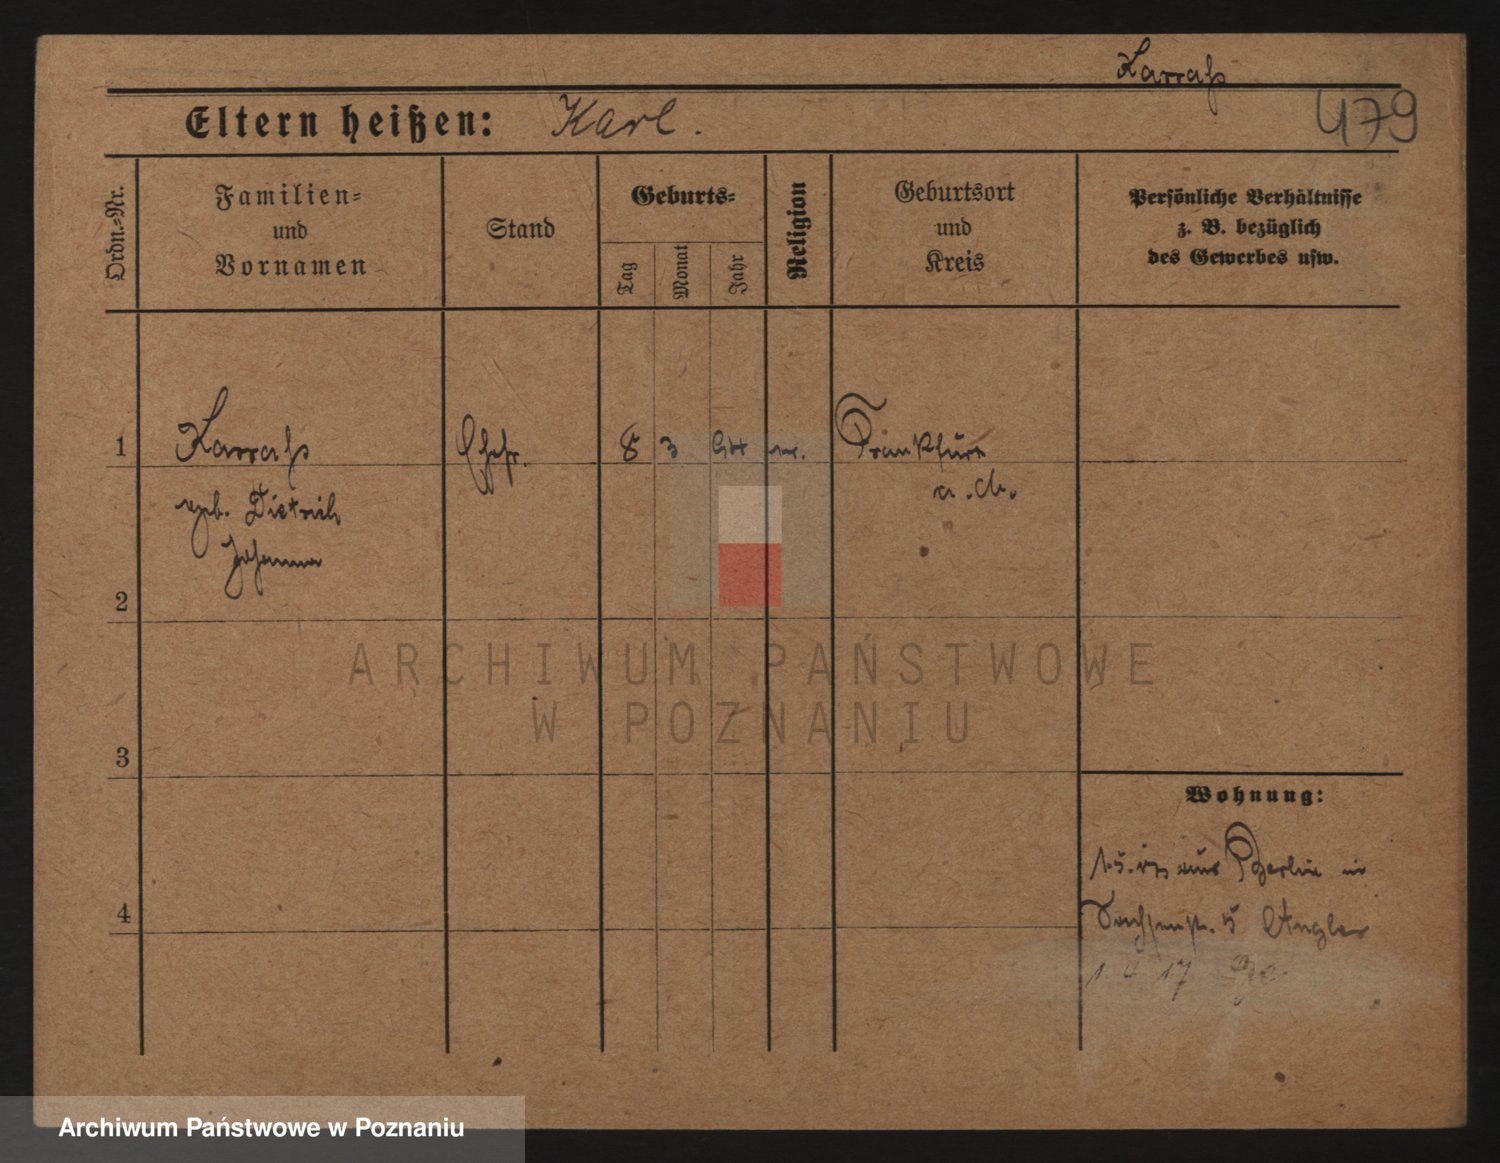 Karraß
Eltern heißen: Karl.
479
Ordn.-Nr.
Familien-
und
Vornamen
Stand
Geburts-
Tag
Monat
Jahr
Religion
Geburtsort
und
Kreis
Persönliche Verhältnisse
z. B. bezüglich
des Gewerbes usw.
1
Karraß
Ehefr.
8
3
ev.
Frankfurt
geb. Dietrich
a. M.
Johanna
2
3
4
ARCHIWUM PAŃSTWOWE
W POZNANIU
Wohnung:
aus Berlin in
5
1 4 17
Archiwum Państwowe w Poznaniu